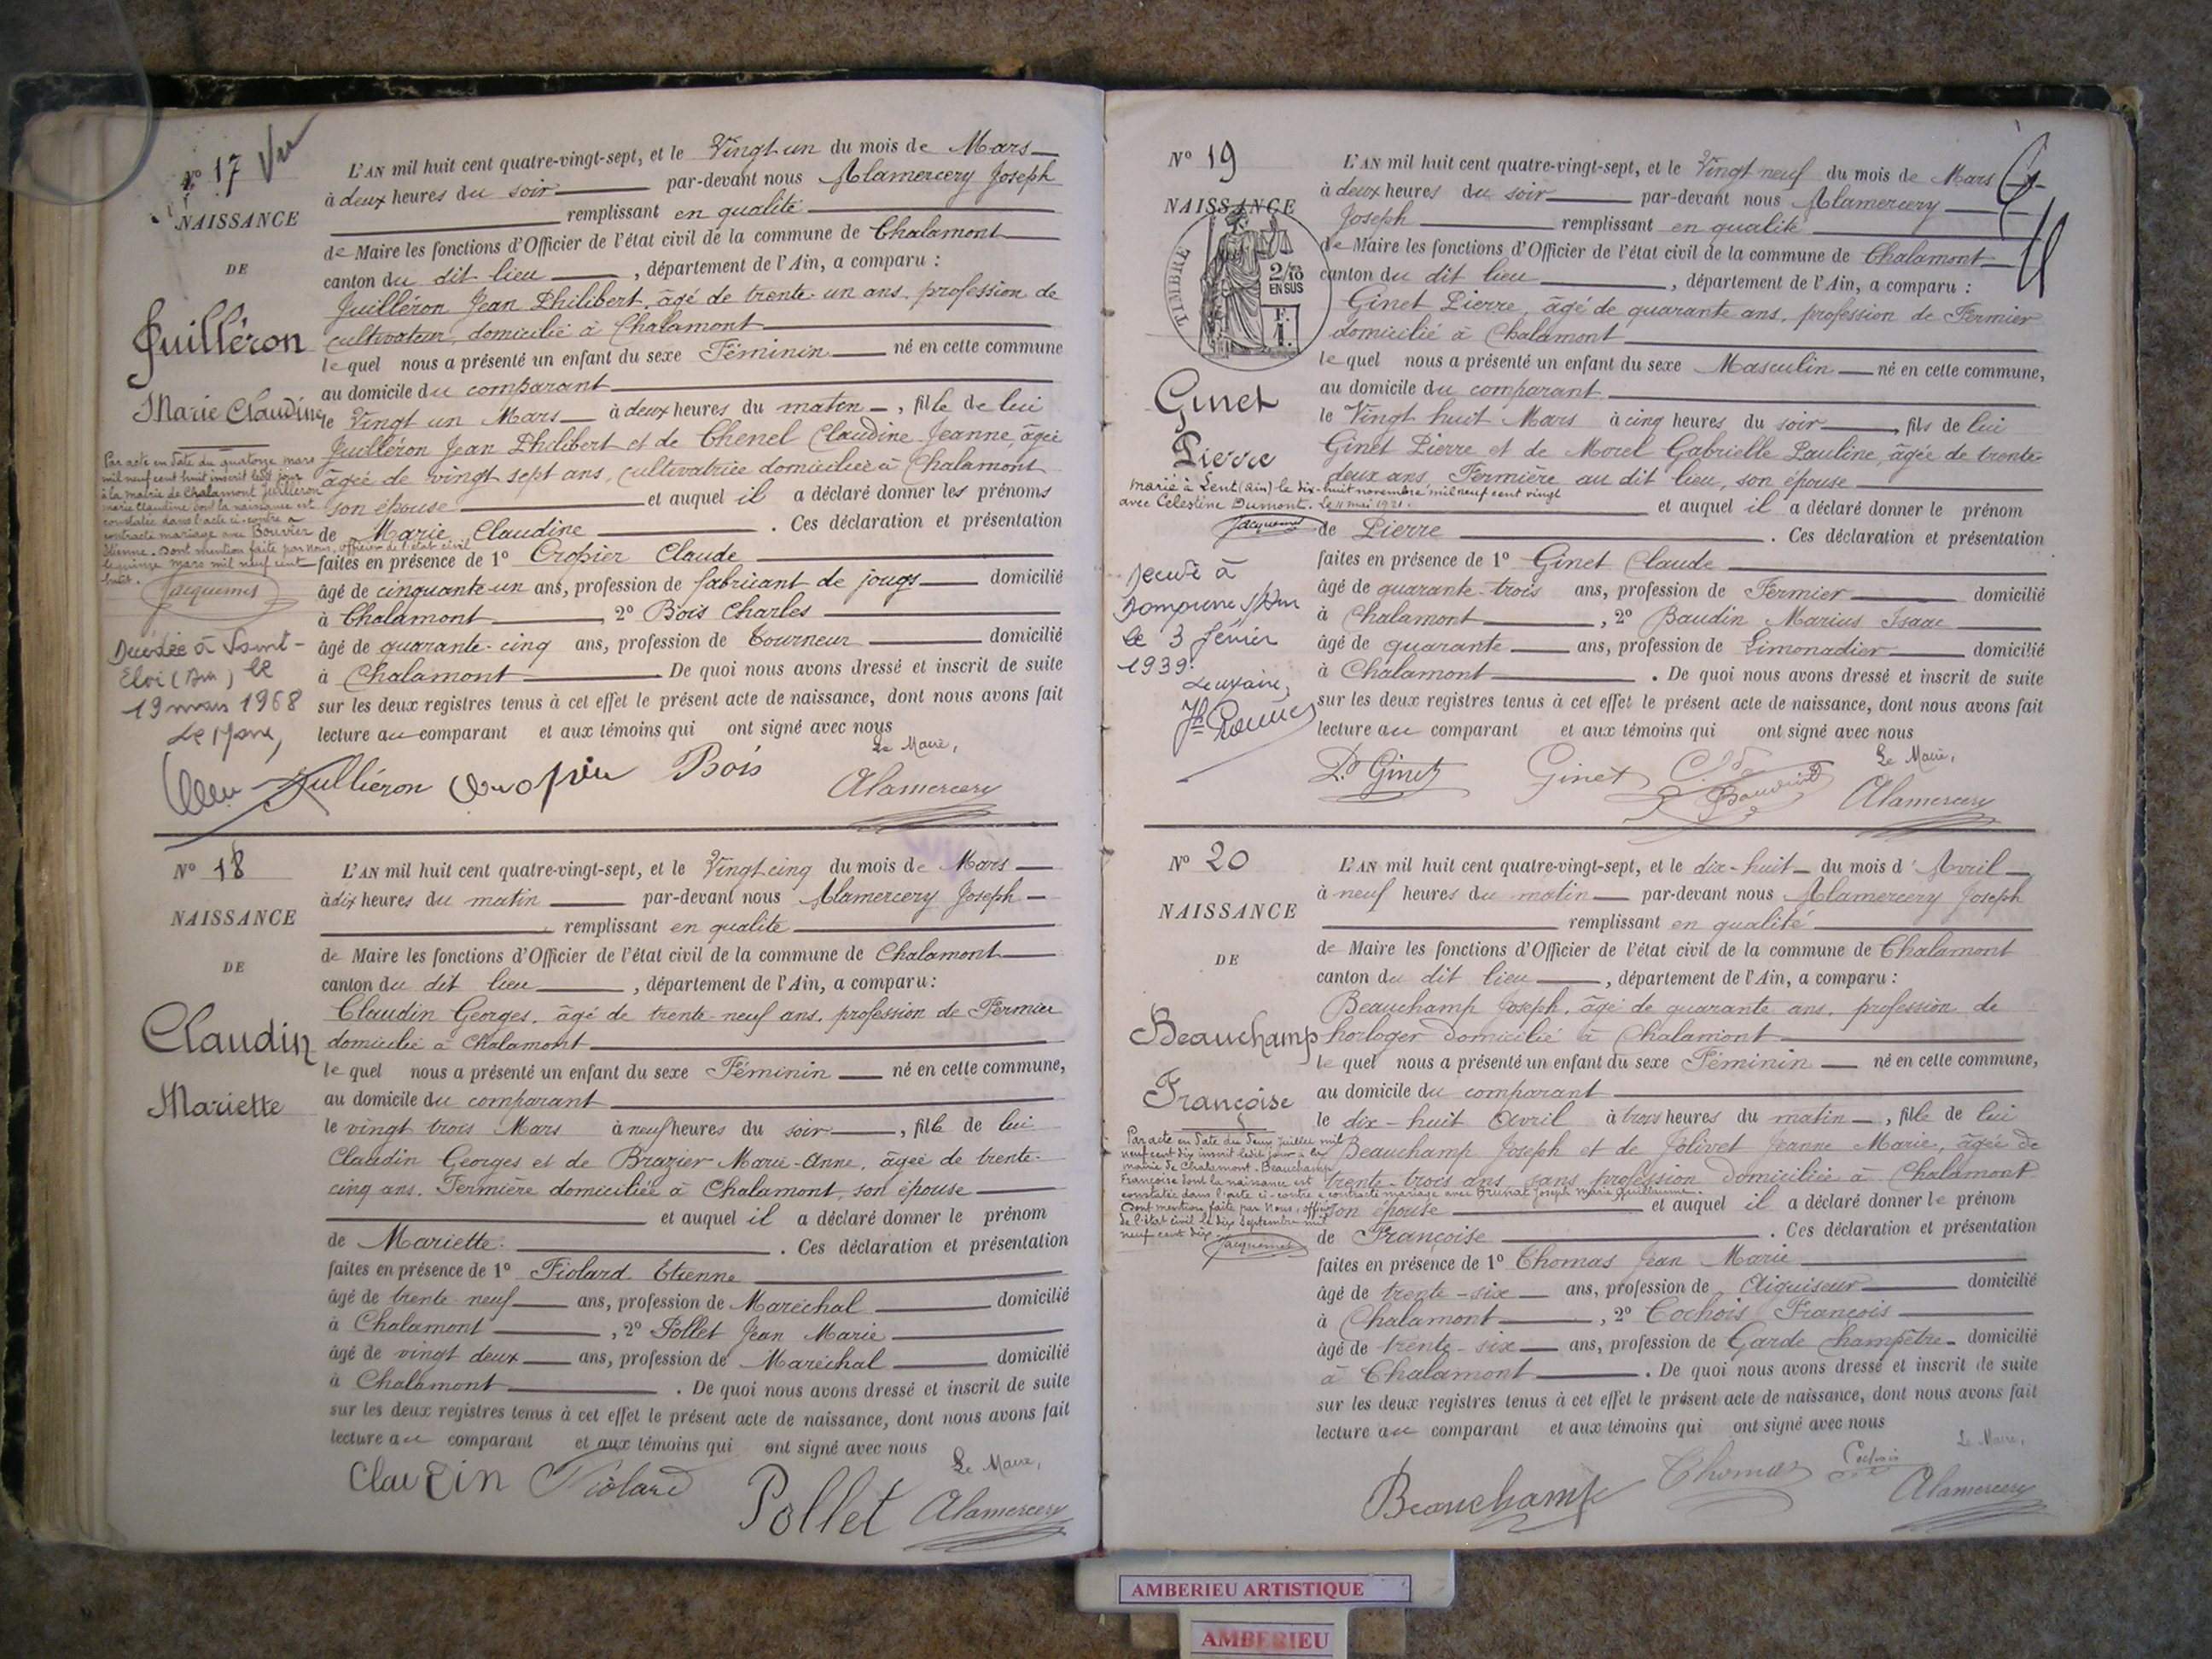 N° 17 Vu
NAISSANCE
DE
Juilléron
Marie Claudine
Par acte en date du quatorze mars
mil neuf cent huit inscrit ledit jour
à la mairie de Chalamont Juilléron
Marie Claudine dont la naissance est
constatée dans l'acte ci-contre a
contracté mariage avec Bouvier
Etienne. Dont mention faite par Nous, officier de l'état civil
le quinze mars mil neuf cent
huit.
Jacquemet
Décédée à Saint-
Eloi (Ain) le
19 mars 1968
Le Maire,
L'AN mil huit cent quatre-vingt-sept, et le Vingt un du mois de Mars
à deux heures du soir par-devant nous Alamercery Joseph
remplissant en qualité
de Maire les fonctions d'Officier de l'état civil de la commune de Chalamont
canton du dit lieu, département de l'Ain, a comparu :
Juilléron Jean Philibert, âgé de trente-un ans, profession de
cultivateur, domicilié à Chalamont
lequel nous a présenté un enfant du sexe Féminin né en cette commune
au domicile du comparant
le Vingt un Mars à deux heures du matin, fille de lui
Juilléron Jean Philibert et de Chenel Claudine Jeanne, âgée
âgée de vingt sept ans, cultivatrice domiciliée à Chalamont
son épouse et auquel il a déclaré donner les prénoms
de Marie Claudine. Ces déclaration et présentation
faites en présence de 1° Cropier Claude
âgé de cinquante-un ans, profession de fabricant de jougs domicilié
à Chalamont, 2° Bois Charles
âgé de quarante-cinq ans, profession de tourneur domicilié
à Chalamont De quoi nous avons dressé et inscrit de suite
sur les deux registres tenus à cet effet le présent acte de naissance, dont nous avons fait
lecture au comparant et aux témoins qui ont signé avec nous
Le Maire,
Juilliéron Cropier Bois Alamercery
N° 18
NAISSANCE
DE
Claudin
Mariette
L'AN mil huit cent quatre-vingt-sept, et le Vingt cinq du mois de Mars
à dix heures du matin par-devant nous Alamercery Joseph
remplissant en qualité
de Maire les fonctions d'Officier de l'état civil de la commune de Chalamont
canton du dit lieu, département de l'Ain, a comparu :
Claudin Georges, âgé de trente-neuf ans, profession de Fermier
domicilié à Chalamont
lequel nous a présenté un enfant du sexe Féminin né en cette commune,
au domicile du comparant
le vingt trois Mars à neuf heures du soir, fille de lui
Claudin Georges et de Brazier Marie-Anne, âgée de trente-
cinq ans. Fermière domiciliée à Chalamont, son épouse
et auquel il a déclaré donner le prénom
de Mariette. Ces déclaration et présentation
faites en présence de 1° Fiolard Etienne
âgé de trente neuf ans, profession de Maréchal domicilié
à Chalamont, 2° Pollet Jean Marie
âgé de vingt deux ans, profession de Maréchal domicilié
à Chalamont. De quoi nous avons dressé et inscrit de suite
sur les deux registres tenus à cet effet le présent acte de naissance, dont nous avons fait
lecture au comparant et aux témoins qui ont signé avec nous
Le Maire,
Claudin Fiolard Pollet Alamercery
N° 19
NAISSANCE
TIMBRE
2/10 EN SUS
F. 1.
Ginet
Pierre
marié à Lent (Ain) le dix-huit novembre mil neuf cent vingt
avec Célestine Dumont. Le 11 mai 1921.
Jacquemet
Décédé à
Dompierre s/Ain
le 3 février
1939.
Le Maire,
L'AN mil huit cent quatre-vingt-sept, et le Vingt neuf du mois de Mars
à deux heures du soir par-devant nous Alamercery
Joseph remplissant en qualité
de Maire les fonctions d'Officier de l'état civil de la commune de Chalamont
canton du dit lieu, département de l'Ain, a comparu :
Ginet Pierre, âgé de quarante ans, profession de Fermier
domicilié à Chalamont
lequel nous a présenté un enfant du sexe Masculin né en cette commune,
au domicile du comparant
le Vingt huit Mars à cinq heures du soir, fils de lui
Ginet Pierre et de Morel Gabrielle Pauline, âgée de trente-
deux ans Fermière au dit lieu, son épouse
et auquel il a déclaré donner le prénom
de Pierre. Ces déclaration et présentation
faites en présence de 1° Ginet Claude
âgé de quarante-trois ans, profession de Fermier domicilié
à Chalamont, 2° Baudin Marius Isaac
âgé de quarante ans, profession de Limonadier domicilié
à Chalamont. De quoi nous avons dressé et inscrit de suite
sur les deux registres tenus à cet effet le présent acte de naissance, dont nous avons fait
lecture au comparant et aux témoins qui ont signé avec nous
Le Maire,
P. Ginet Ginet Cde Baudin Alamercery
N° 20
NAISSANCE
DE
Beauchamp
Françoise
Par acte en date du deux Juillet mil
neuf cent dix inscrit ledit jour à la
mairie de Chalamont. Beauchamp
Françoise dont la naissance est
constatée dans l'acte ci-contre a contracté mariage avec Brunat Joseph Marie Guillaume.
Dont mention faite par Nous, officier
de l'état civil le dix Septembre mil
neuf cent dix.
Jacquemet
L'AN mil huit cent quatre-vingt-sept, et le dix-huit du mois d'Avril
à neuf heures du matin par-devant nous Alamercery Joseph
remplissant en qualité
de Maire les fonctions d'Officier de l'état civil de la commune de Chalamont
canton du dit lieu, département de l'Ain, a comparu :
Beauchamp Joseph, âgé de quarante ans, profession de
horloger domicilié à Chalamont
lequel nous a présenté un enfant du sexe Féminin né en cette commune,
au domicile du comparant
le dix-huit Avril à trois heures du matin, fille de lui
Beauchamp Joseph et de Jolivet Jeanne Marie, âgée de
trente-trois ans, sans profession domiciliée à Chalamont
son épouse et auquel il a déclaré donner le prénom
de Françoise. Ces déclaration et présentation
faites en présence de 1° Thomas Jean Marie
âgé de trente-six ans, profession de Aiguiseur domicilié
à Chalamont, 2° Cochois François
âgé de trente-six ans, profession de Garde champêtre domicilié
à Chalamont. De quoi nous avons dressé et inscrit de suite
sur les deux registres tenus à cet effet le présent acte de naissance, dont nous avons fait
lecture au comparant et aux témoins qui ont signé avec nous
Le Maire,
Beauchamp Thomas Cochois Alamercery
AMBERIEU ARTISTIQUE
AMBERIEU